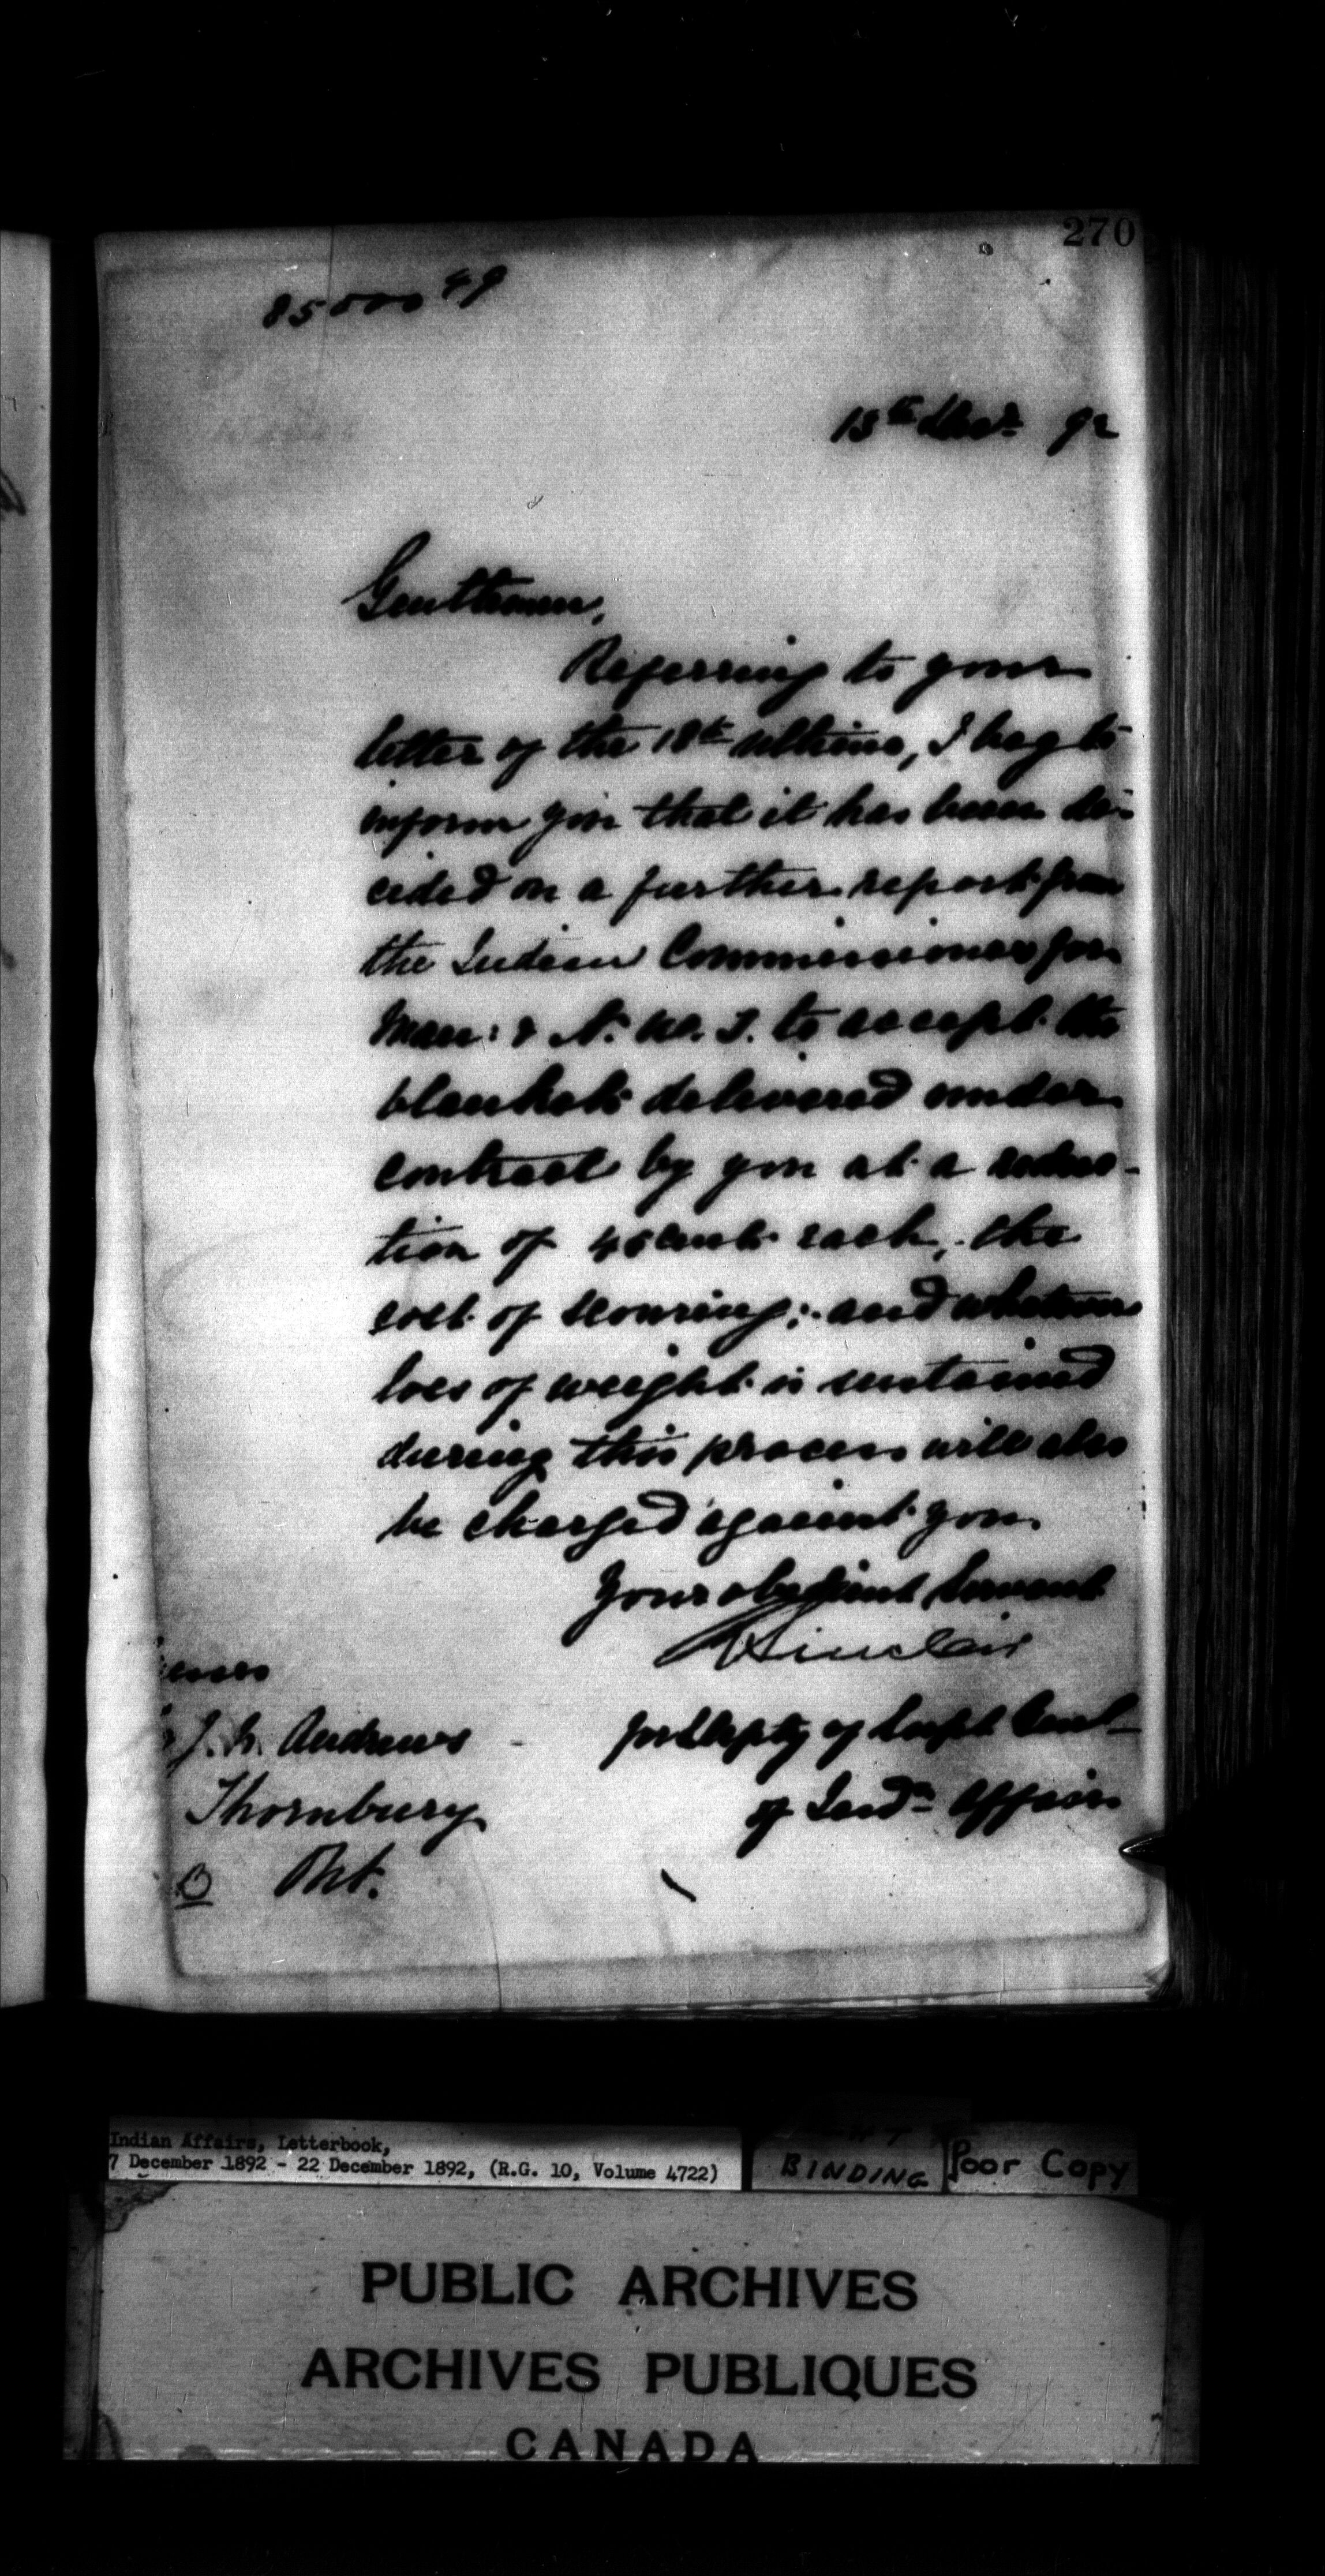 270
85000 49
13th Decr. 92
Gentlemen,
Referring to your
letter of the 18th ultimo, I beg to
inform you that it has been de-
cided on a further report from
the Indian Commissioner for
Man: & N. W. T. to accept the
blankets delivered under
contract by you at a reduc-
tion of cents each, the
cost of scouring; and whatever
loss of weight is sustained
during this process will also
be charged against you.
Your obedient Servant
Sinclair
for Depty of Supt Genl
of Indn Affairs
J. Andrews
Thornbury
Ont.
Indian Affairs, Letterbook,
7 December 1892 - 22 December 1892, (R.G. 10, Volume 4722)
BINDING
Poor Copy
PUBLIC ARCHIVES
ARCHIVES PUBLIQUES
CANADA